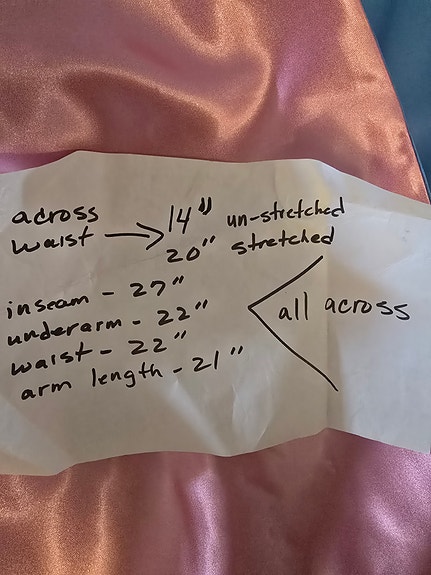 across
waist → 14" un-stretched
20" stretched
inseam - 27"
underarm - 22"
waist - 22"
arm length - 21"
all across